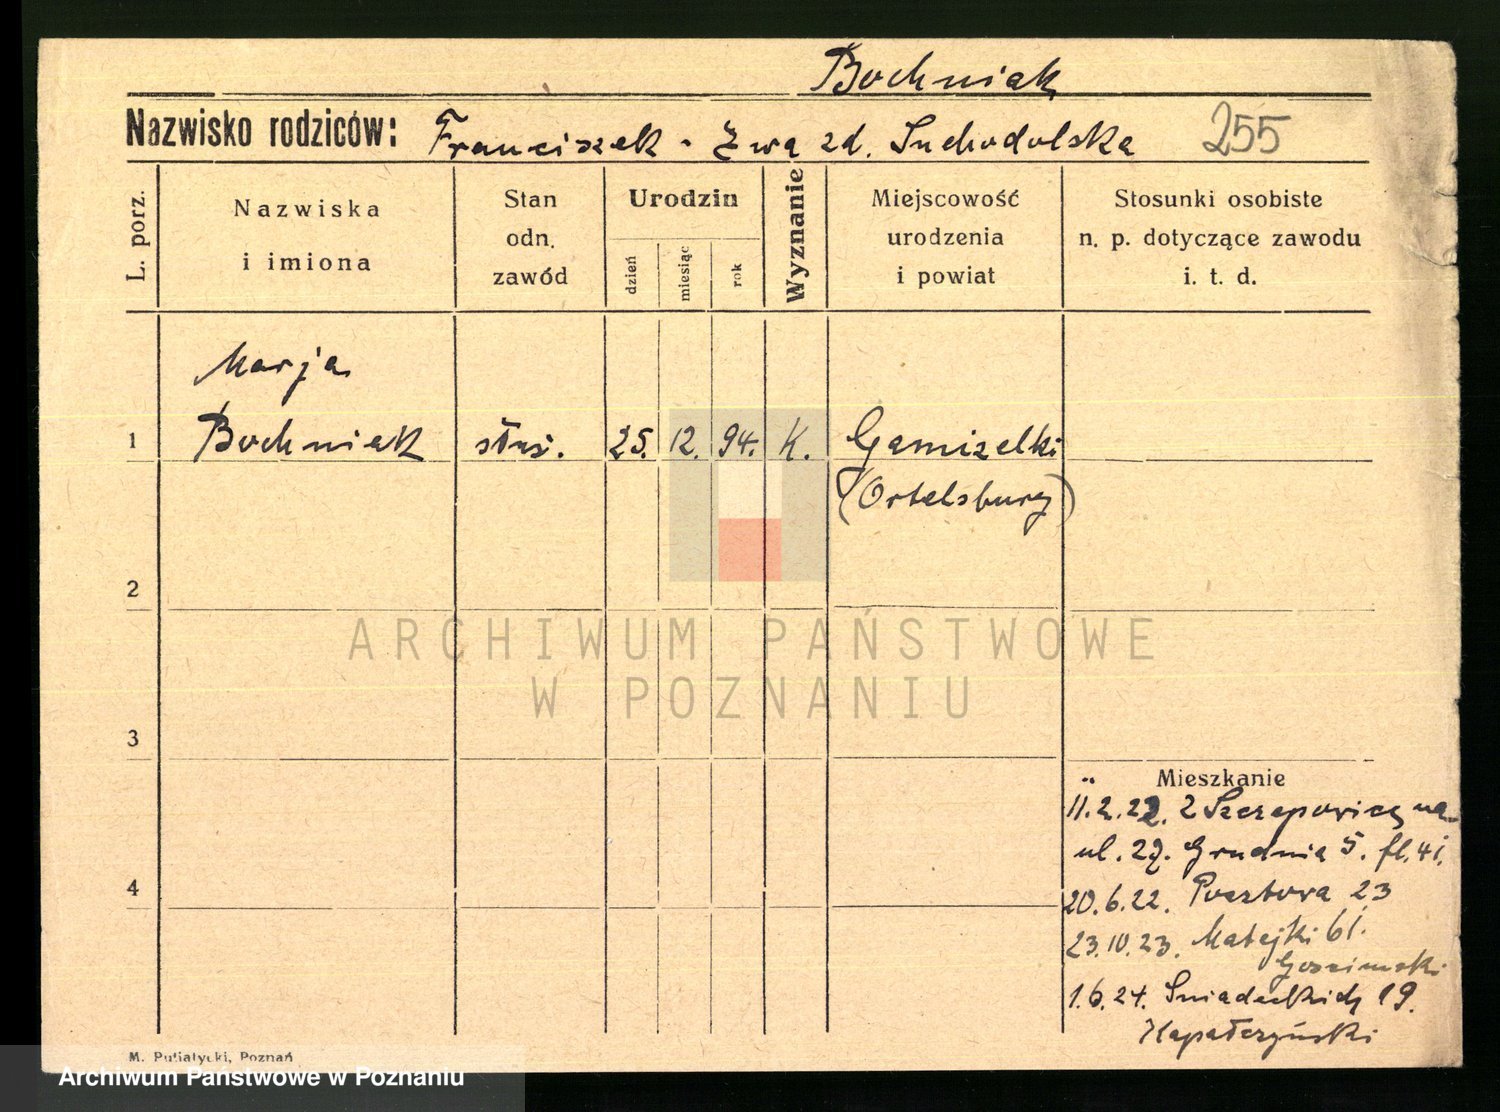 Bochniak
Nazwisko rodziców: Franciszek - Ewa zd. Suchodolska 255
L. porz.
Nazwiska
i imiona
Stan
odn.
zawód
Urodzin
dzień
miesiąc
rok
Wyznanie
Miejscowość
urodzenia
i powiat
Stosunki osobiste
n. p. dotyczące zawodu
i. t. d.
Marja
1 Bochniak służ. 25. 12. 94. K. Gamizelki
(Ortelsburg)
2
ARCHIWUM PAŃSTWOWE
W POZNANIU
3
Mieszkanie
11.2.22. z Szczepowic na
ul. 27. Grudnia 5.
4
20.6.22. Pocztowa 23
23.10.23. Matejki 61.
1.6.24. Śniadeckich 19.
M. Putiatycki, Poznań
Archiwum Państwowe w Poznaniu